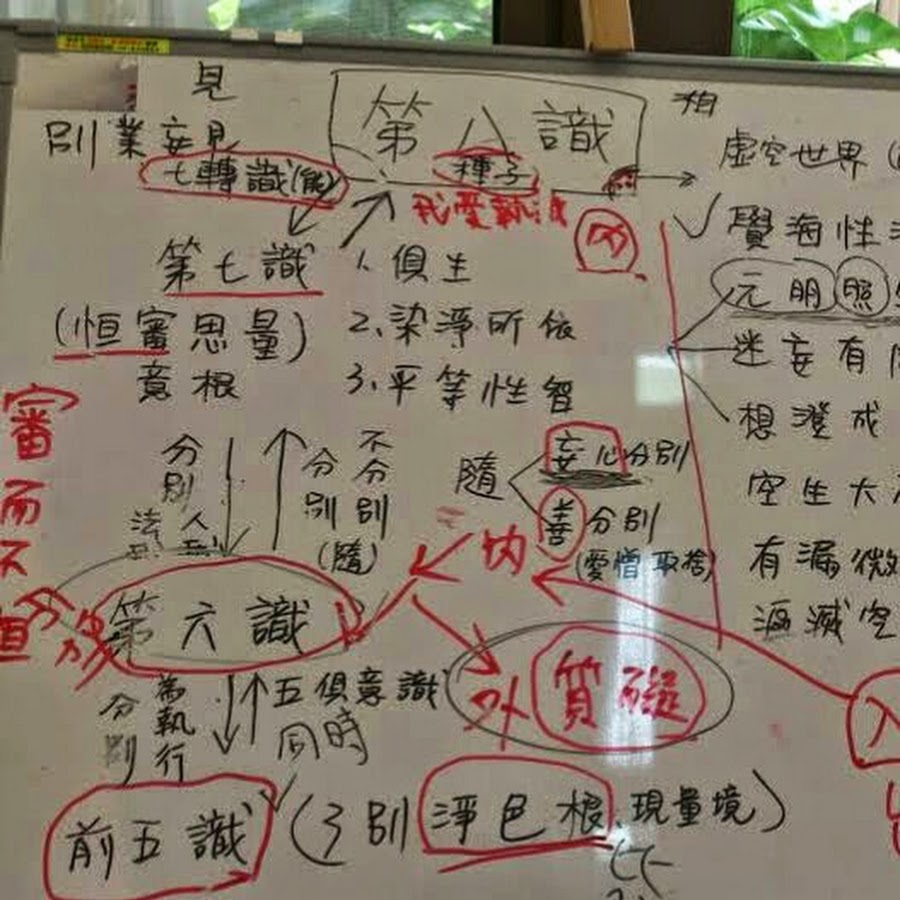 見
第八識
相
別業妄見
虛空世界
七轉識(能)
種子
我愛執
內
覺海性
第七識
1. 俱生
元明照
(恒審思量)
2. 染淨所依
迷妄有
意根
3. 平等性智
想澄成
審而不恒
分別
分別
不分別
(隨)
隨
妄心分別
善分別
(愛憎取捨)
空生大
有漏微
漚滅空
內
第六識
分別
為執行
五俱意識
同時
外
質礙
入
前五識
(了別淨色根、現量境)